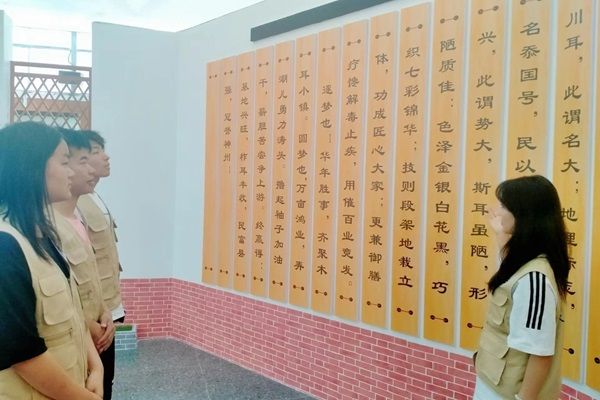 川耳，此谓名大；地理
国号，民以
兴，此谓势大，斯耳虽陋，形
陋质佳：色泽金银白花黑，巧
织七彩锦华；技则段架地栽立
体，功成匠心大家；更兼御膳
疗馋解毒止疾，用催百业竞发。
逐梦也：华年胜事，齐聚木
耳小镇。圆梦也，万亩鸿业，弄
潮儿勇力涛头。撸起袖子加油
干，胆苦争上游。终赢得：
基地兴旺，柞耳丰收，民富县
强，冠誉神州！